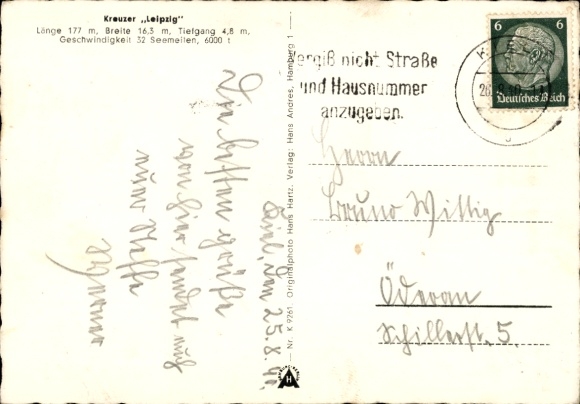 Kreuzer „Leipzig“
Länge 177 m, Breite 16,3 m, Tiefgang 4,8 m,
Geschwindigkeit 32 Seemeilen, 6000 t
Vergiß nicht Straße
und Hausnummer
anzugeben.
6 6
Deutsches Reich
Herrn
Bruno Wittig
Öderan
Schillerstr. 5.
Kiel, den 25.8.40.
Die besten Grüße
von hier sendet auf
Nr. K 9261. Originalphoto Hans Hartz. Verlag: Hans Andres, Hamburg 1